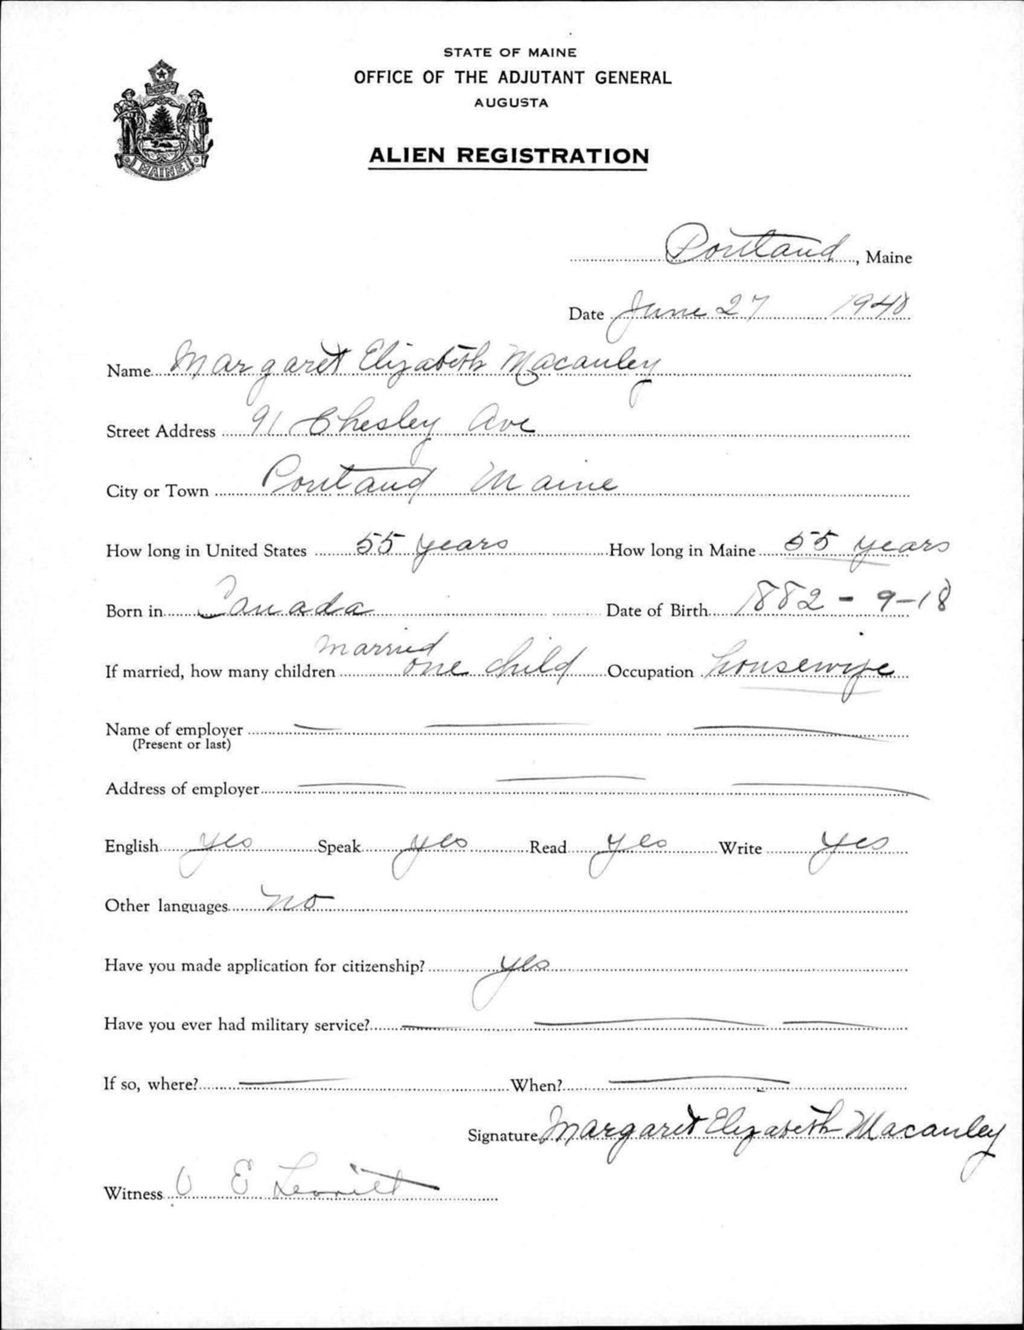 STATE OF MAINE
OFFICE OF THE ADJUTANT GENERAL
AUGUSTA
ALIEN REGISTRATION
MAINE
Portland, Maine
Date June 27 1940
Name Margaret Elizabeth Macauley
Street Address 91 Chesley Ave
City or Town Portland Maine
How long in United States 55 years How long in Maine 55 years
Born in Canada Date of Birth 1882-9-18
If married, how many children married one child Occupation housewife
Name of employer
(Present or last)
Address of employer
English yes Speak yes Read yes Write yes
Other languages no
Have you made application for citizenship? yes
Have you ever had military service?
If so, where? When?
Signature Margaret Elizabeth Macauley
Witness E